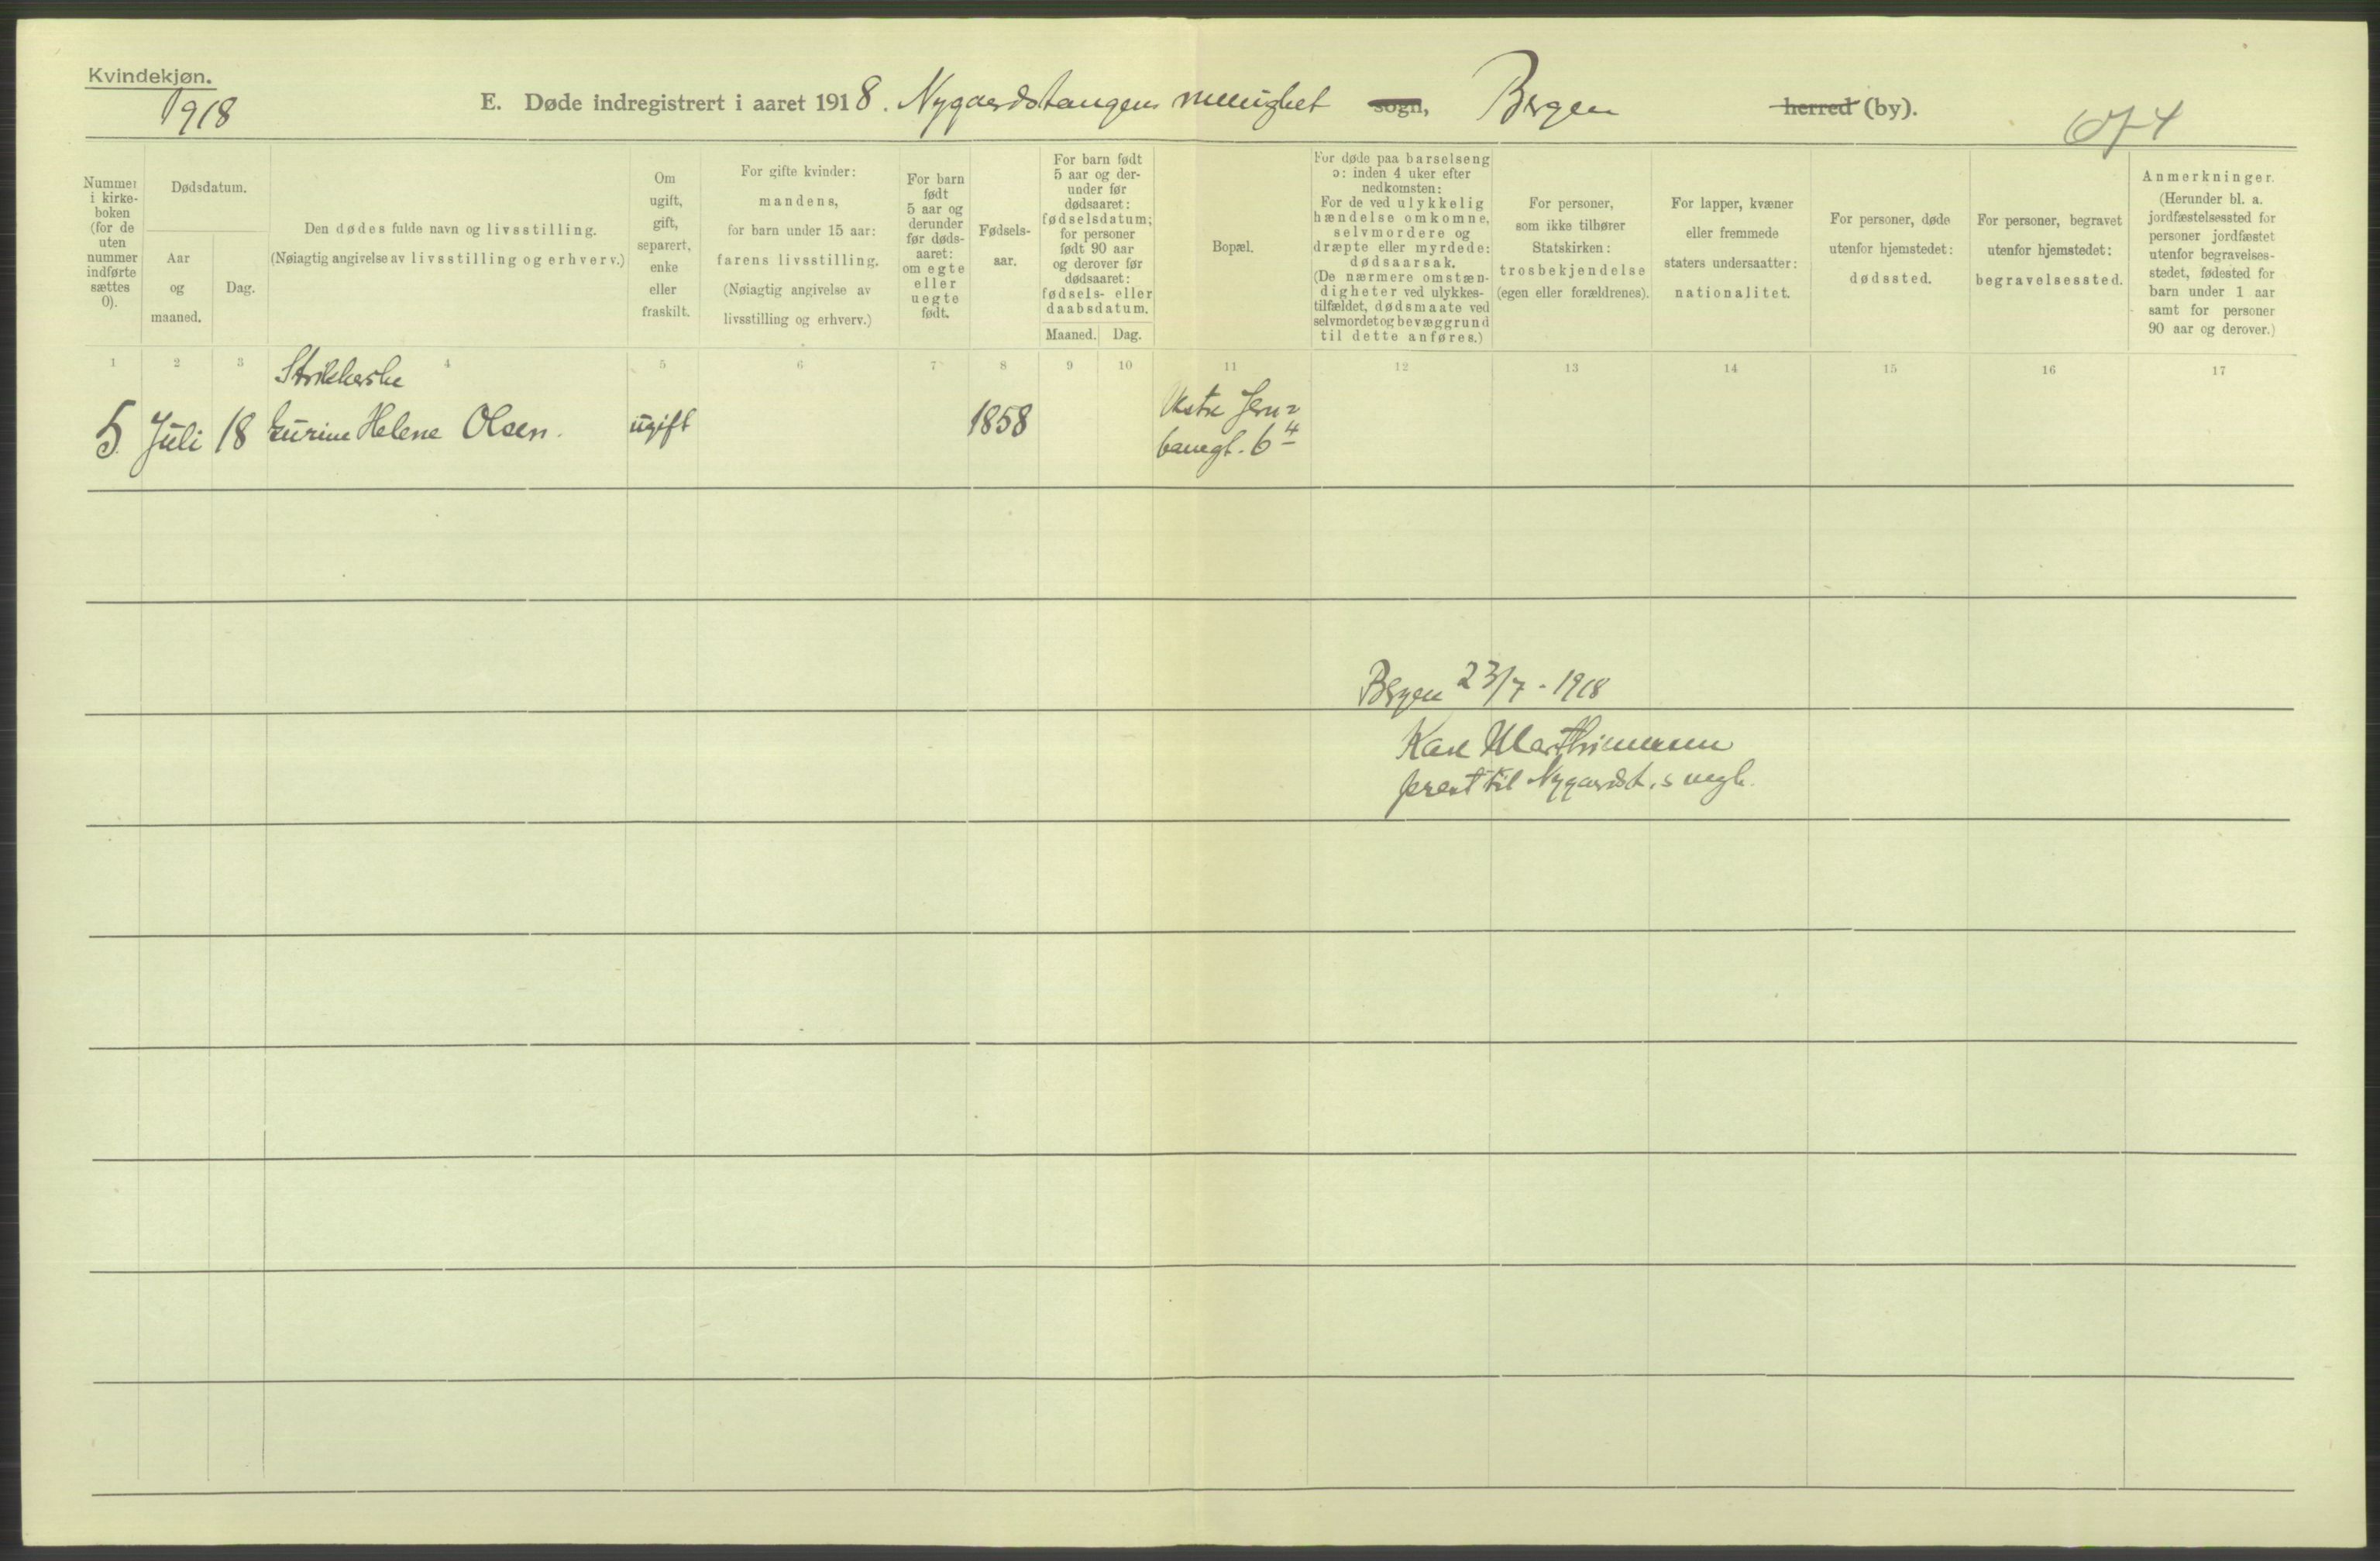 Kvindekjøn.
1918
E. Døde indregistrert i aaret 1918. Nygaardstangens menighet sogn, Bergen herred (by).
Nummer i kirke- boken (for de uten nummer indførte sættes 0).
Dødsdatum.
Aar og maaned.
Dag.
Den dødes fulde navn og livsstilling.
(Nøiagtig angivelse av livsstilling og erhverv.)
Om ugift, gift, separert, enke eller fraskilt.
For gifte kvinder:
mandens,
for barn under 15 aar:
farens livsstilling.
(Nøiagtig angivelse av
livsstilling og erhverv.)
For barn født 5 aar og derunder før døds- aaret: om egte eller uegte født.
Fødsels- aar.
For barn født
5 aar og der-
under før
dødsaaret:
fødselsdatum;
for personer
født 90 aar
og derover før
dødsaaret:
fødsels- eller
daabsdatum.
Maaned. Dag.
Bopæl.
For døde paa barselseng
ɔ: inden 4 uker efter
nedkomsten:
For de ved ulykkelig
hændelse omkomne,
selvmordere og
dræpte eller myrdede:
dødsaarsak.
(De nærmere omstæn-
digheter ved ulykkes-
tilfældet, dødsmaate ved
selvmordet og bevæggrund
til dette anføres.)
For personer,
som ikke tilhører
Statskirken:
trosbekjendelse
(egen eller forældrenes).
For lapper, kvæner
eller fremmede
staters undersaatter:
nationalitet.
For personer, døde
utenfor hjemstedet:
dødssted.
For personer, begravet
utenfor hjemstedet:
begravelsessted.
Anmerkninger.
(Herunder bl. a.
jordfæstelsessted for
personer jordfæstet
utenfor begravelses-
stedet, fødested for
barn under 1 aar
samt for personer
90 aar og derover.)
1 2 3 4 5 6 7 8 9 10 11 12 13 14 15 16 17
Strikkerske
5. Juli 18 Helene Olsen. ugift 1858
Vestre Jern=
banegt. 6 4
Bergen 23/7 - 1918
Karl Marthinussen
prest til Nygaardst.s megh.